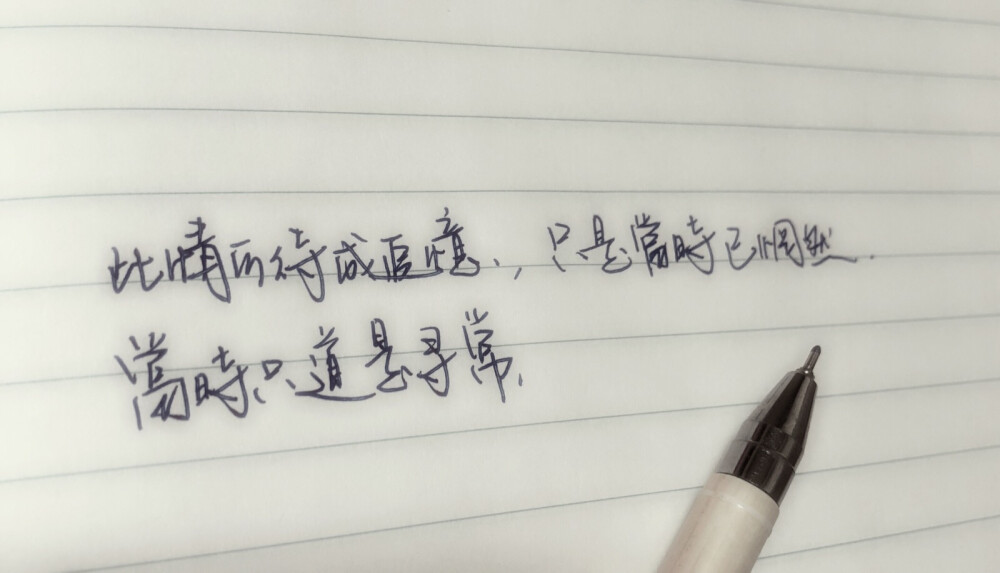 此情可待成追憶,只是當時已惘然.
當時只道是寻常.